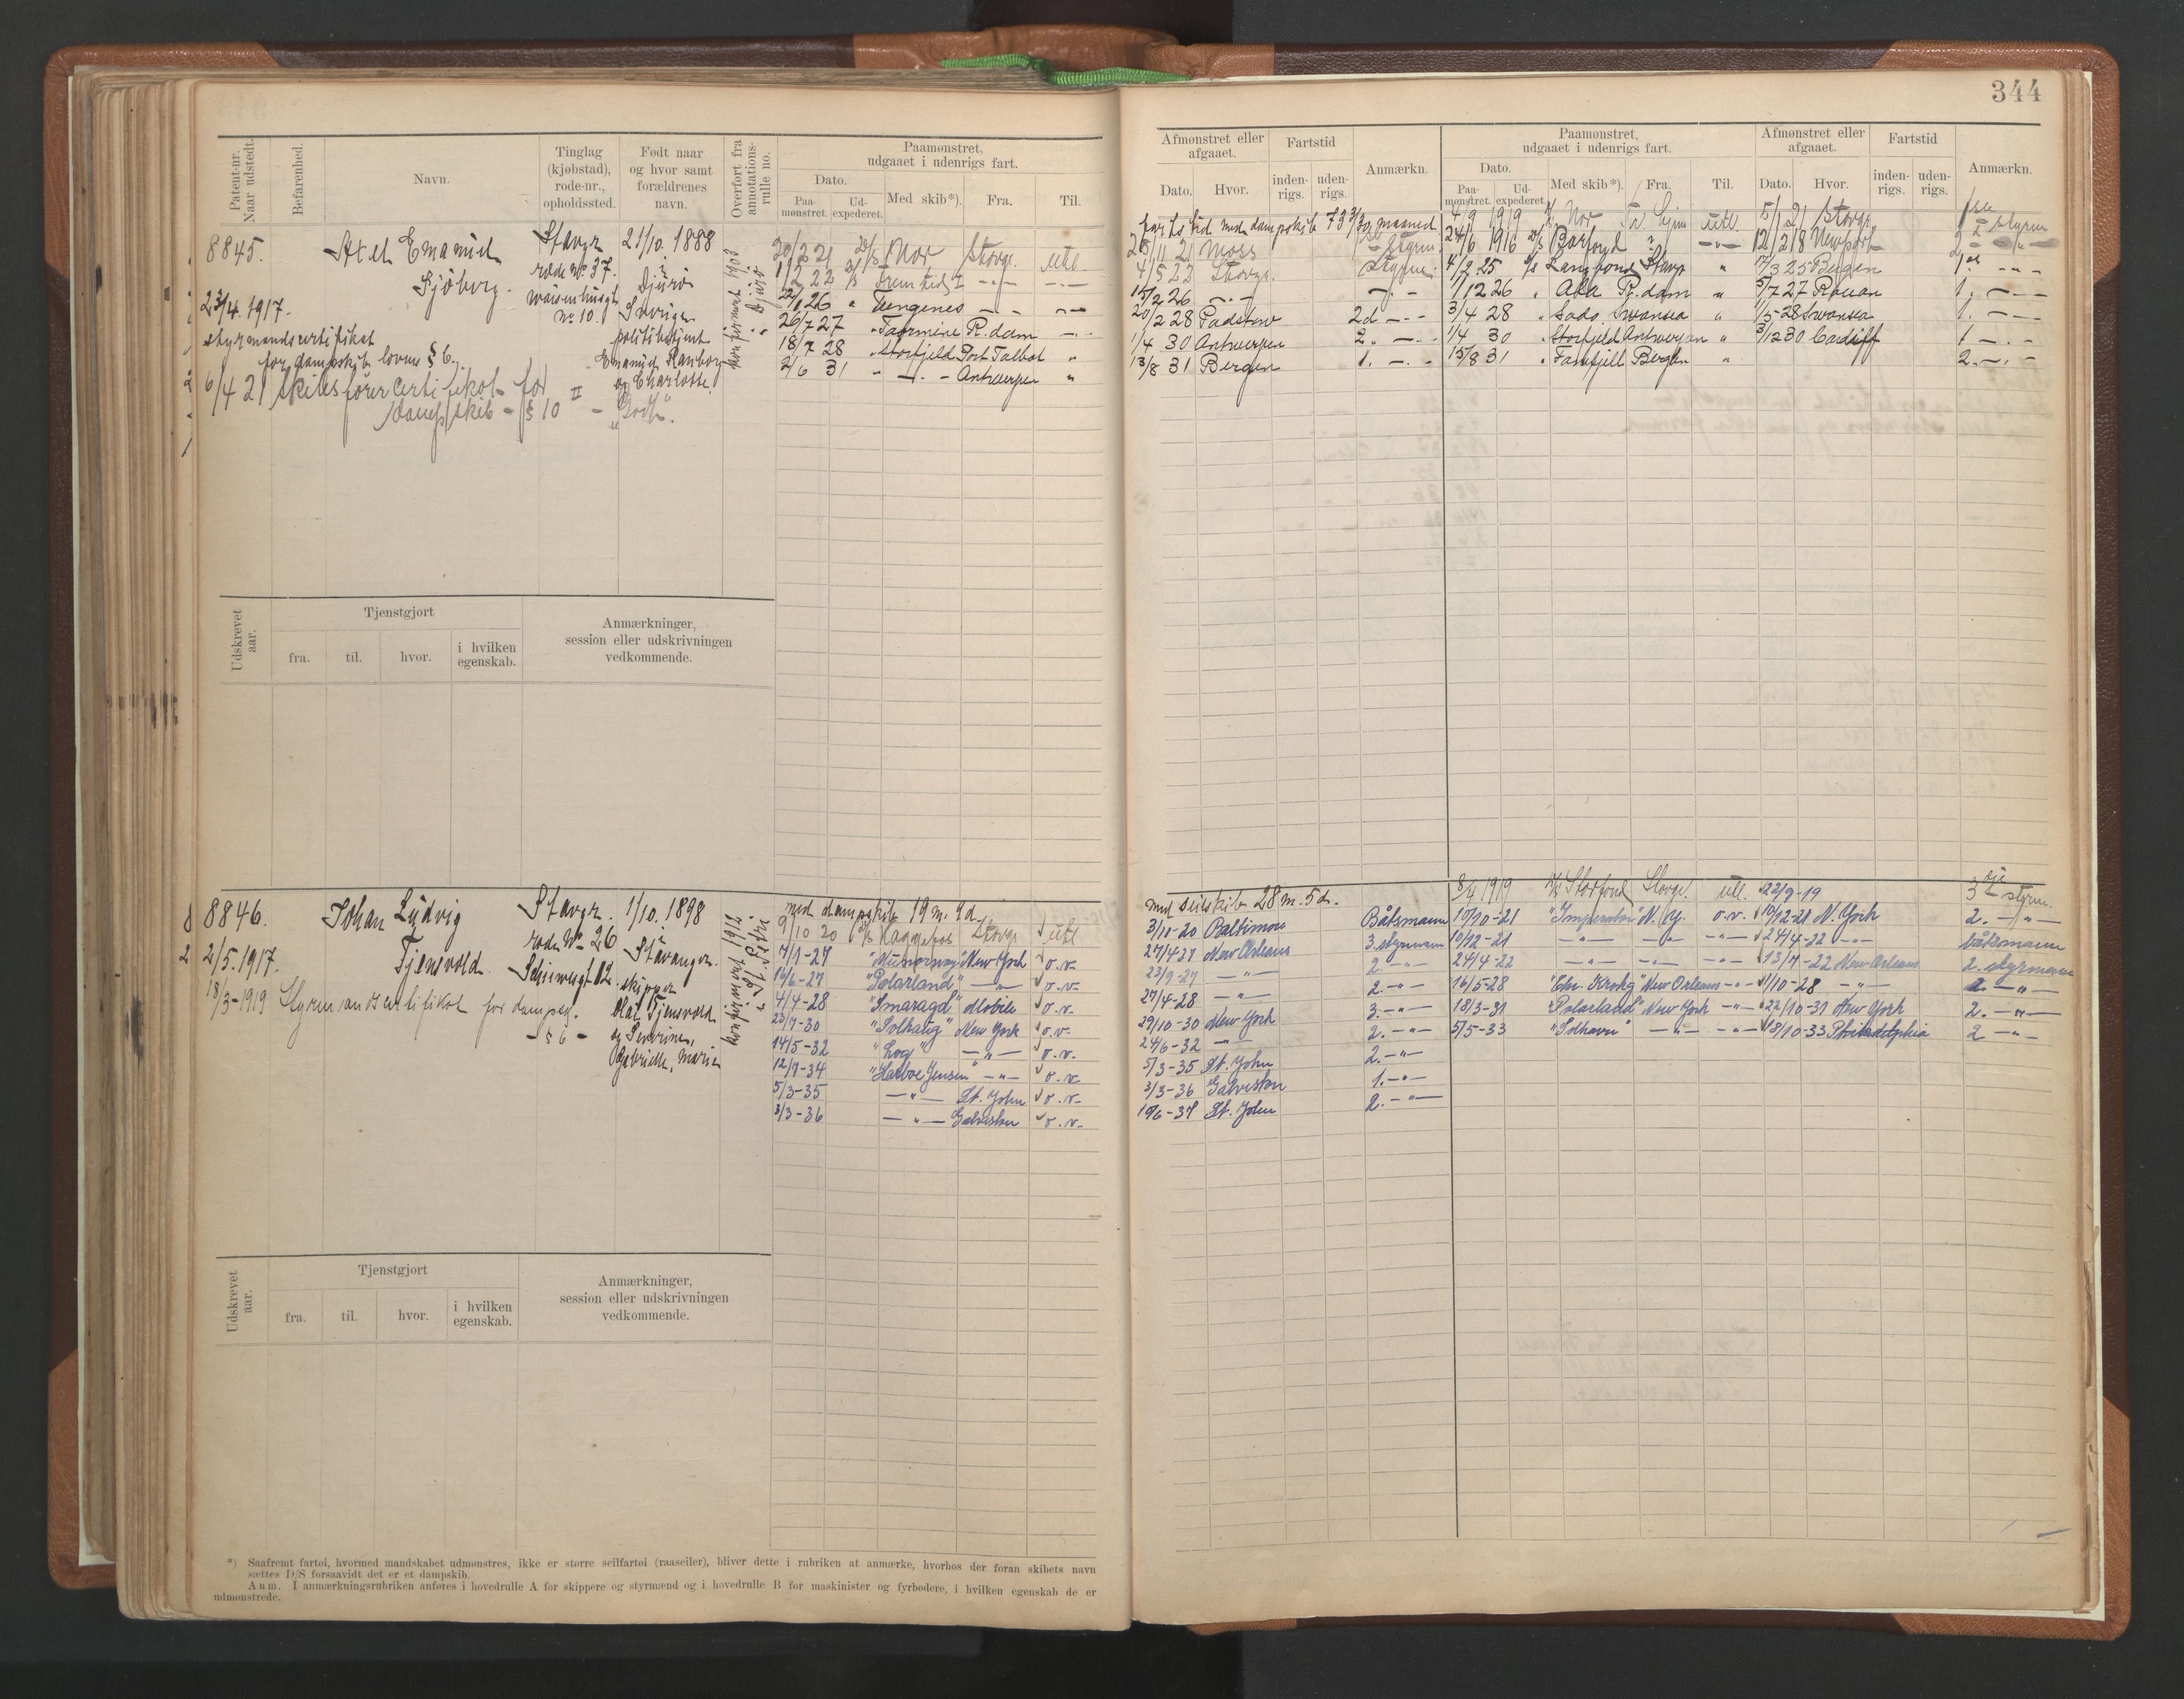 344
Patent-nr. Naar udstedt.
Befarenhed.
Navn.
Tinglag (kjøbstad), rode-nr., opholdssted.
Født naar og hvor samt forældrenes navn.
Overført fra annotations-rulle no.
Paamønstret, udgaaet i udenrigs fart.
Dato.
Paa-mønstret.
Ud-expederet.
Med skib*).
Fra.
Til.
Afmønstret eller afgaaet.
Dato.
Hvor.
Fartstid
inden-rigs.
uden-rigs.
Anmærkn.
Paamønstret, udgaaet i udenrigs fart.
Dato.
Paa-mønstret.
Ud-expederet.
Med skib*).
Fra.
Til.
Afmønstret eller afgaaet.
Dato.
Hvor.
Fartstid
inden-rigs.
uden-rigs.
Anmærkn.
8845.
Axel Emanuel
Sjöberg.
Stavgr
rode No 37.
No 10.
21/10. 1888
Djurö
Sverige
politibetjent
Emanuel
og Charlotte
"Godt".
konfirmert 1903
i Djurö
23/4. 1917.
styrmandscertifikat
for dampskib loven § 6.
6/4 21 skibsførercertifikat for
dampskib - § 10
Nor Stavgr. utl.
22/1 26 " Tungenes
26/7 27 " Taormina R.dam
18/7 28 " Storfjeld Port Talbot "
2/6 31 " Antwerpen "
fartstid med dampskib 73 3/30 maaned
Moss
4/5 22 Stavgr. Styrm.
15/2 26
20/2 28 Padstow 2d
1/4 30 Antwerpen 2.
13/8 31 Bergen 1.
4/9 1919 Nor utl. 5/1 21 Stavgr. styrm
24/6 1916 12/2 18 Newport
4/2 25 Langfond Stavgr " 17/3 25 Bergen
1/12 26 " Aka R.dam " 5/7 27 Rouen 1.
3/4 28 " Sado Swansea " 1/5-28 Swansea 1.
1/4 30 " Storfjeld Antwerpen " 3/12 30 Cardiff 1
15/8 31 " Fanefjeld Bergen " 2.
Udskrevet aar.
Tjenstgjort
fra.
til.
hvor.
i hvilken egenskab.
Anmærkninger, session eller udskrivningen vedkommende.
8846.
Johan Ludvig
Tjensvold.
Stavgr.
rode No 26
1/10. 1898
Stavanger.
skipper
Olaf Tjensvold
og Severine,
Gabrielle, Marie
konfirmert 1912
i St. Petri.
2/5. 1917.
18/3-1919 Styrmandscertifikat for dampsk.
- § 6 -
med dampskib 19 m. 9 d.
9/10 20 Haggefos Stavgr utl
7/1-27 "Munorway" New York o.v.
16/6-27 "Polarland" o.v.
4/4-28 "Smaragd" Mobile o.v.
23/7-30 "Solhaug" New York o.v.
14/5-32 "Log" o.v.
12/9-34 "Harboe Jensen" o.v.
5/3-35 St. John o.v.
3/3-36 Galveston o.v.
med seilskib 28 m. 5 d.
3/11-20 Baltimore Båtsmann
27/4-27 New Orleans 3. styrmann
23/9-27 2.
27/4-28 2.
29/10-30 New York 3.
24/6-32 2.
5/3-35 St. John 2.
3/3-36 Galveston 1.
19/6-37 St. John 2.
8/4 1919 Storfond Stavgr. utl. 22/9-19 3 styrm.
10/10-21 "Imperator" N.Y. o.v. 10/12-21 N. York 2.
10/12-21 24/4-22 båtsmann
24/4-22 13/7-22 New Orleans 2. styrmann
16/5-28 "Chr. Krohg" New Orleans 1/10-28 2.
18/3-31 "Polarland" New York 22/10-31 New York 2.
5/5-33 "Solhavn" 18/10-33 Philadelphia 2
Udskrevet aar.
Tjenstgjort
fra.
til.
hvor.
i hvilken egenskab.
Anmærkninger, session eller udskrivningen vedkommende.
*) Saafremt fartøi, hvormed mandskabet udmønstres, ikke er større seilfartøi (raaseiler), bliver dette i rubriken at anmærke, hvorhos der foran skibets navn
sættes D/S forsaavidt det er et dampskib.
Anm. I anmærkningsrubriken anføres i hovedrulle A for skippere og styrmænd og i hovedrulle B for maskinister og fyrbødere, i hvilken egenskab de er
udmønstrede.